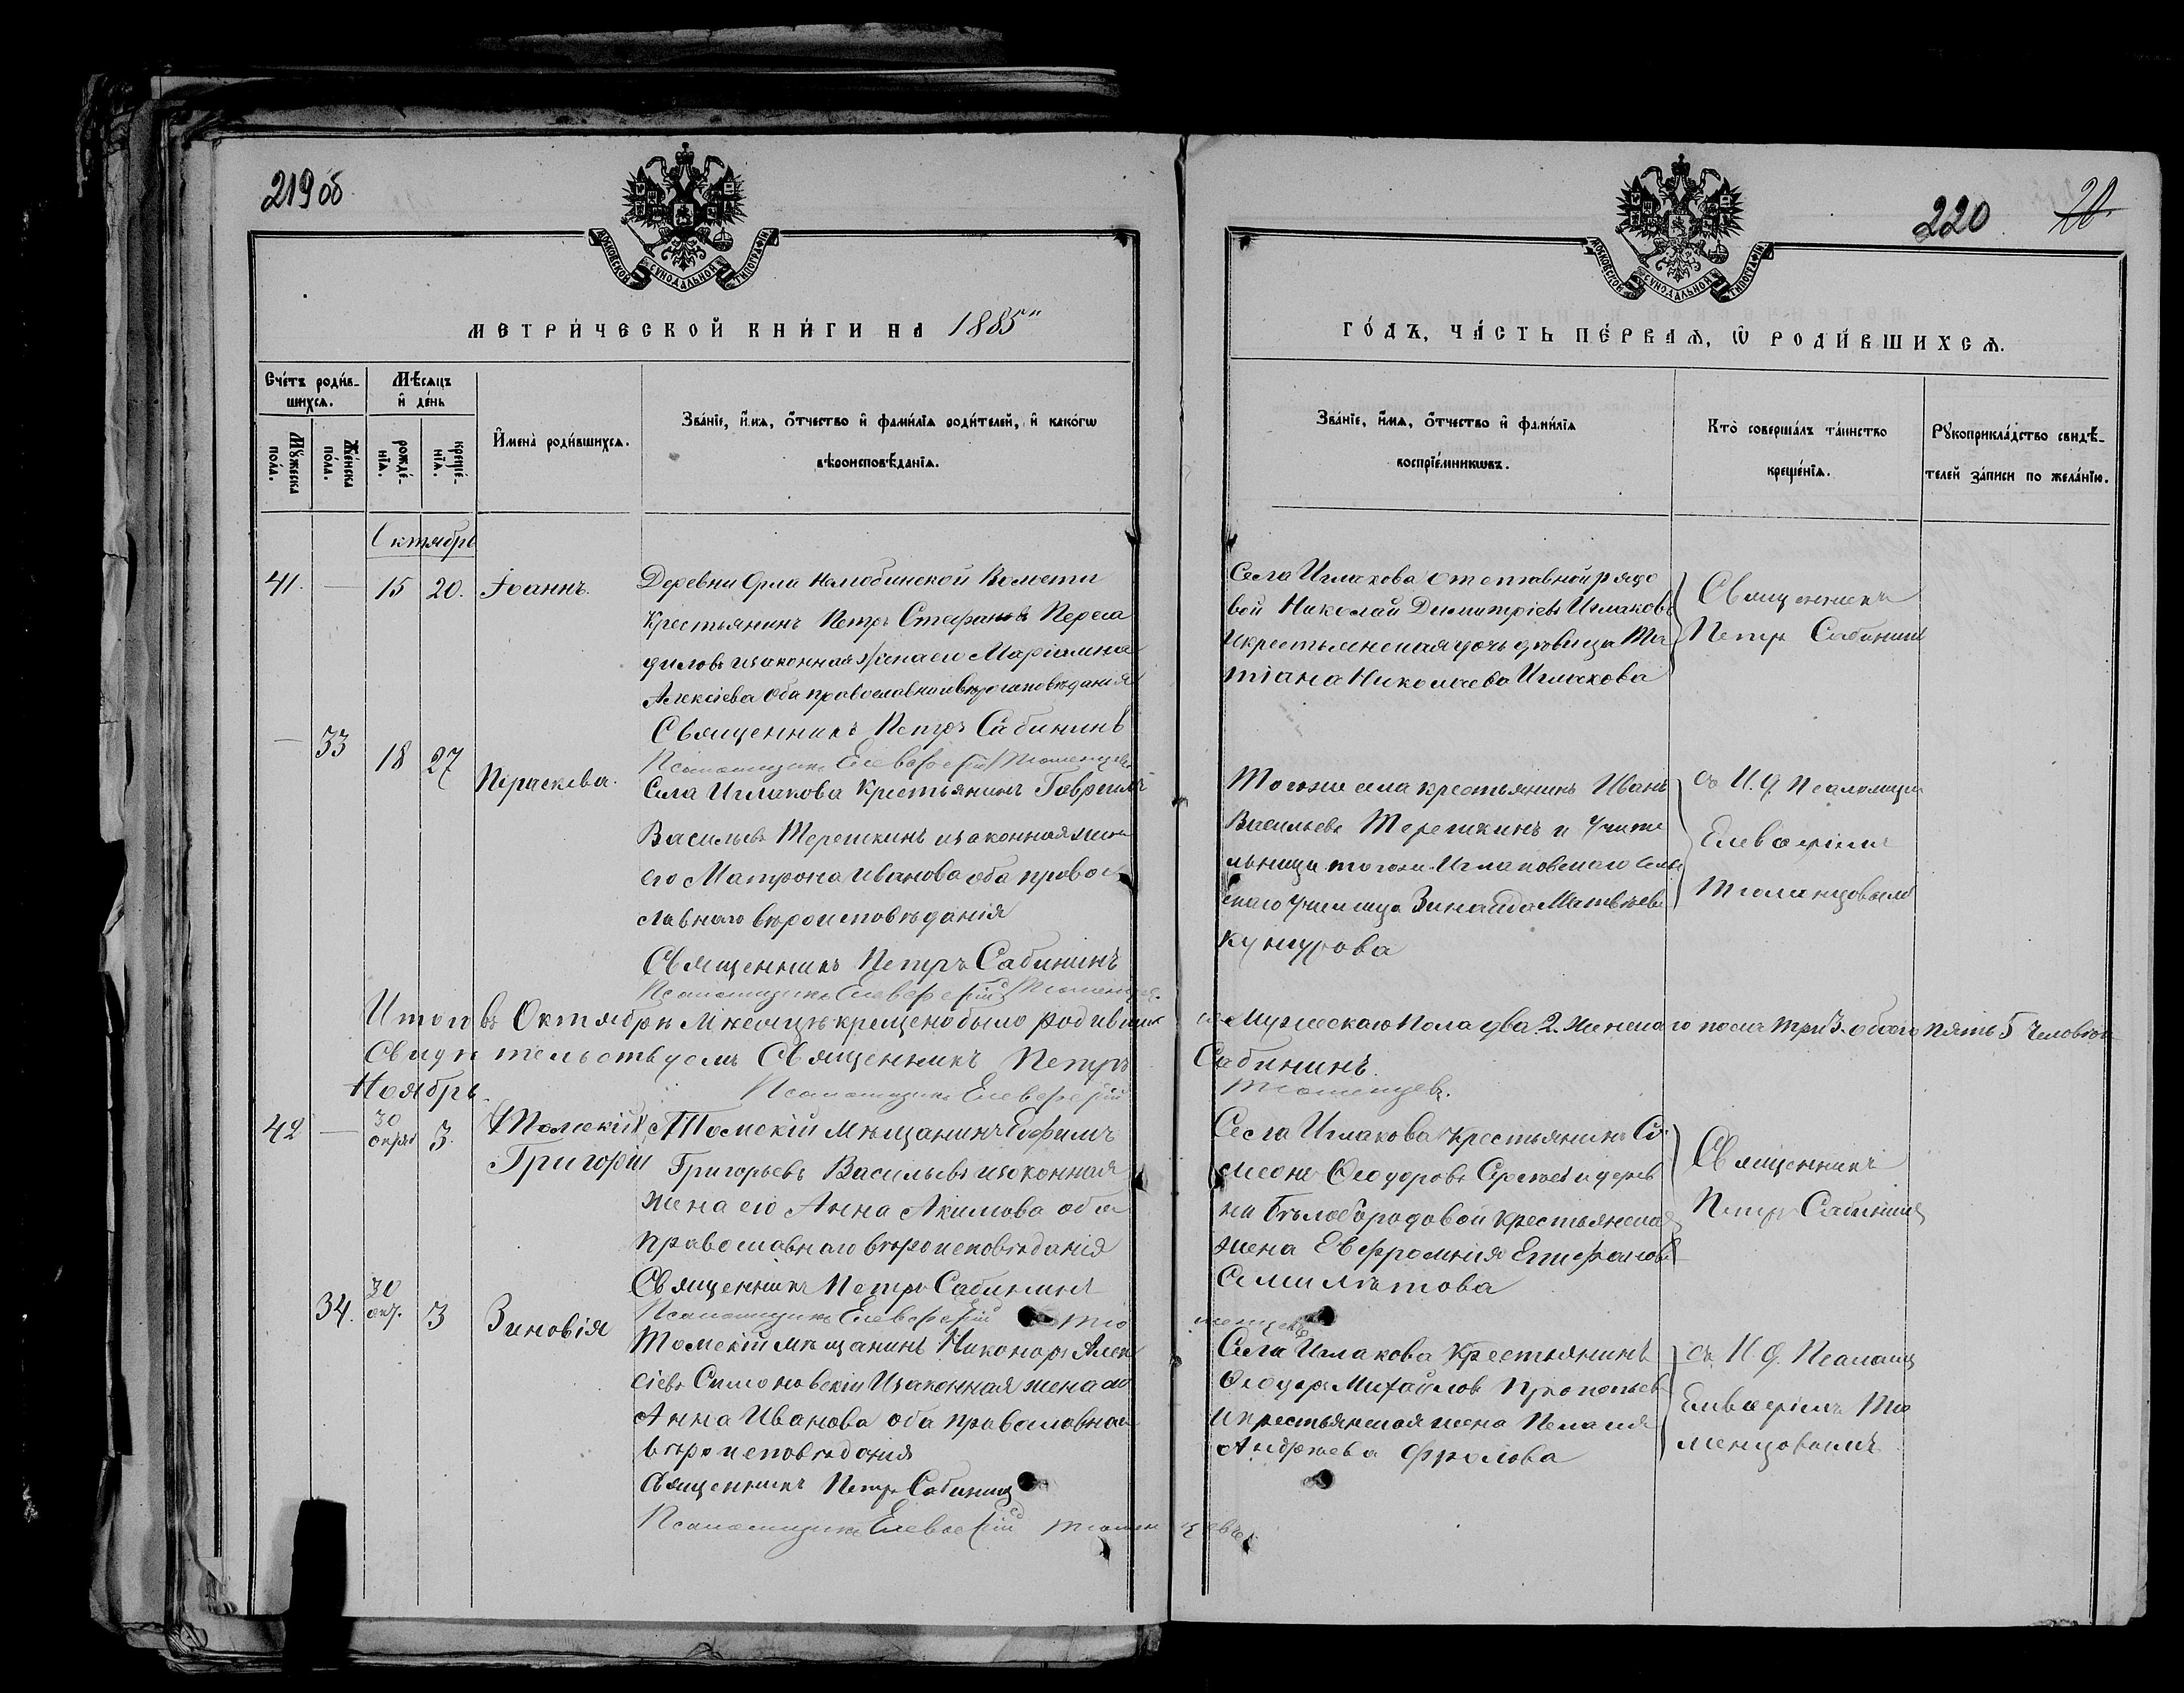 219 об
МОСКОВСКОЙ СѴНОДАЛЬНОЙ ТИПОГРАФІИ
МЕТРИ́ЧЕСКОЙ КНИ́ГИ НА 1885
Сче́тъ роди́в-
шихсѧ.
Мѣ́сѧцъ
и҆ де́нь
Мꙋ́жеска
по́ла.
Же́нска
по́ла.
рожде́-
нїѧ.
креще́-
нїѧ.
И҆мена̀ роди́вшихсѧ.
Зва́нїе, и҆́мѧ, ѻ҆́тчество и҆ фами́лїѧ роди́телей, и҆ како́гѡ
вѣроисповѣ́данїѧ.
Октябрь
41. — 15 20. Іоаннъ.
Деревни Орла Нелюбинской Волости
Крестьянинъ Петръ Стефановъ
и законная жена его Маріамна
Алексіева оба православнаго вѣроисповѣданія
Священникъ Петръ Сабининъ
Псаломщикъ Елевферій Тюменцевъ
— 33 18 27 Параскева.
Села Иглакова Крестьянинъ Гавріилъ
Васильевъ Терешкинъ и законная жена
его Матрона Иванова оба правос
лавнаго вѣроисповѣданія
Священникъ Петръ Сабининъ
Псаломщикъ Елевферій Тюменцевъ.
Итого въ Октябрѣ Мѣсяцѣ крещено было родивших
Свидѣтельствуемъ Священникъ Петръ
Ноябрь.
Псаломщикъ Елевферій
42 — 30 октяб 3.
Григорій
Томскій Мѣщанинъ Ефимъ
Григорьевъ Васильевъ и законная
жена его Анна Акимова оба
православнаго вѣроисповѣданія
Священникъ Петръ Сабининъ
Псаломщикъ Елевферій Тю
34. 30 окт. 3 Зиновія
Томскій мѣщанинъ Никоноръ Алек
сіевъ Симоновскій и законная жена его
Анна Иванова оба православнаго
вѣроисповѣданія
Священникъ Петръ Сабининъ
Псаломщикъ Елевферій Тюмен
220 20
МОСКОВСКОЙ СѴНОДАЛЬНОЙ ТИПОГРАФІИ
ГО́ДЪ, ЧА́СТЬ ПЕ́РВАѦ, Ѽ РОДИ́ВШИХСѦ.
Зва́нїе, и҆́мѧ, ѻ҆́тчество и҆ фами́лїѧ
воспрїе́мникѡвъ.
Кто̀ соверша́лъ та́инство
креще́нїѧ.
Рꙋкоприкла́дство свидѣ́-
телей за́писи по жела́нїю.
Села Иглакова отставной рядо
вой Николай Димитріевъ Иглаковъ
и крестьянская дочь дѣвица Та
тіана Николаева Иглакова
Священникъ
Петръ Сабининъ
Тогоже села крестьянинъ Иванъ
Васильевъ Терешкинъ и Учите
льница тогоже Иглаковскаго Сель
скаго училища Зинаида Матвѣева
съ И. д. Псаломщи
Елевферіемъ
Тюменцовымъ
ся Мужескаго пола два 2. женскаго пола три 3. обоего пять 5 человѣкъ
Сабининъ.
Тюменцевъ.
Села Иглакова крестьянинъ Си
меонъ Ѳеодоровъ и дерев
ни Бѣлобородовой крестьянская
жена Евфросинія Епифанова
Священникъ
Петръ Сабининъ
менцевъ
Села Иглакова Крестьянинъ
Ѳеодоръ Михайловъ Прокопьевъ
и крестьянская жена Пелагія
Андреева Фролова
съ И. д. Псаломщ
Елевферіемъ Тю
менцовымъ
цевъ.